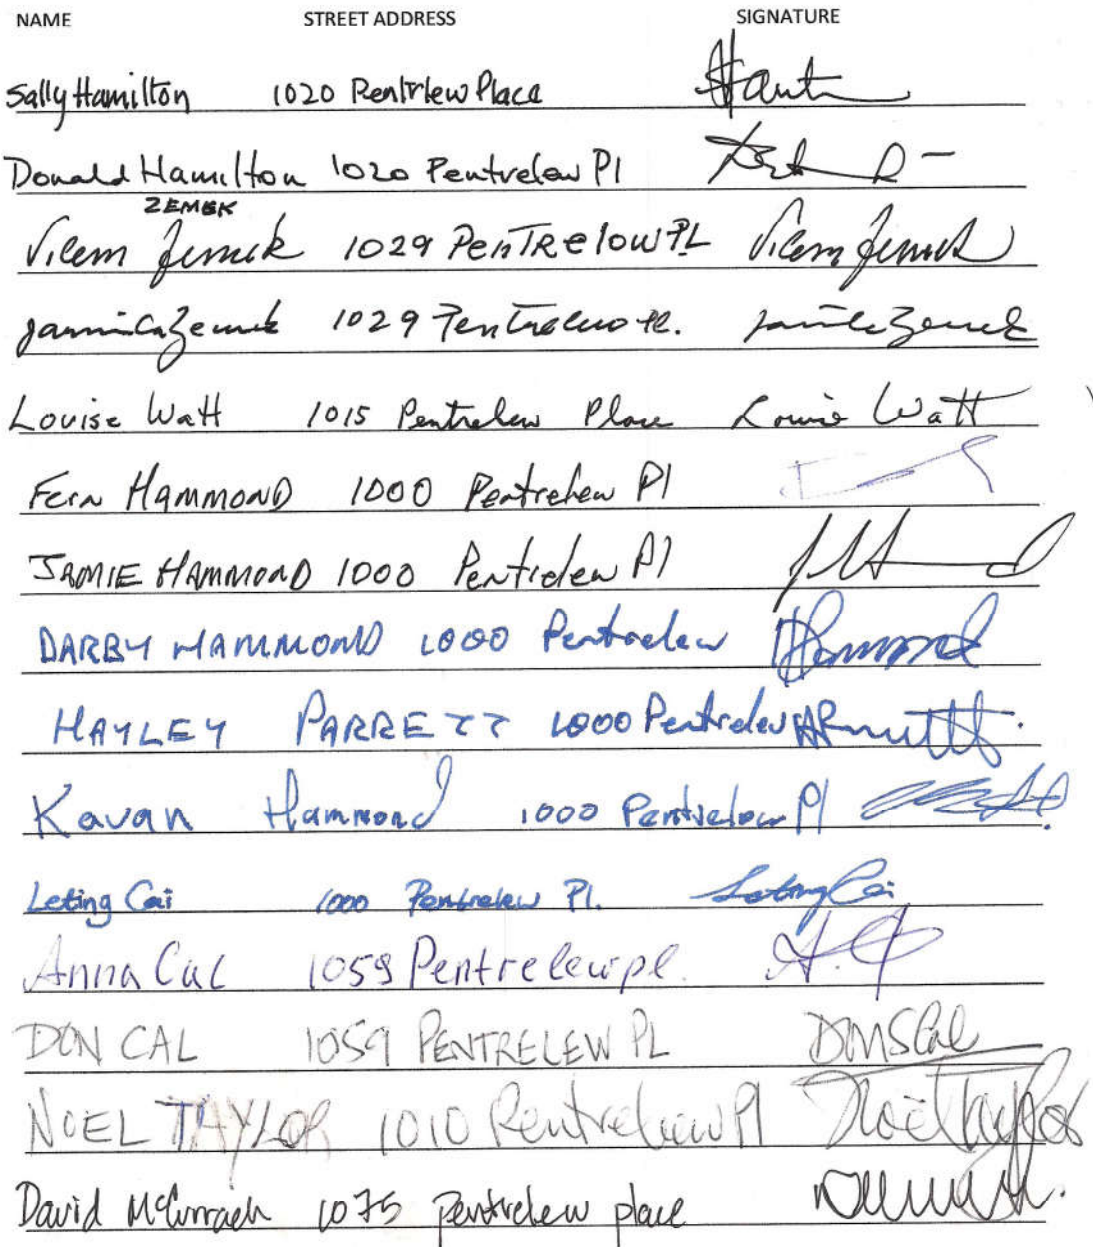 NAME STREET ADDRESS SIGNATURE
Sally Hamilton 1020 Pentrlew Place
Donald Hamilton 1020 Pentrelew Pl
ZEMEK
Vilem Zemek 1029 PenTRelow PL Vilem Zemek
Jarmila Zemek 1029 Pentrelew Pl. Jarmila Zemek
Louise Watt 1015 Pentrelew Place Louise Watt
Fern HAMMOND 1000 Pentrelew Pl
JAMIE HAMMOND 1000 Pentrelew Pl
DARBY HAMMOND 1000 Pentrelew DHammond
HAYLEY PARRETT 1000 Pentrelew
Kavan Hammond 1000 Pentrelew Pl
Leting Cai 1000 Pentrelew Pl. Leting Cai
Anna Cal 1059 Pentrelew pl. A.C
DON CAL 1059 PENTRELEW PL DMSCal
NOEL TAYLOR 1010 Pentrelew Pl Noel Taylor
David 1075 pentrelew place